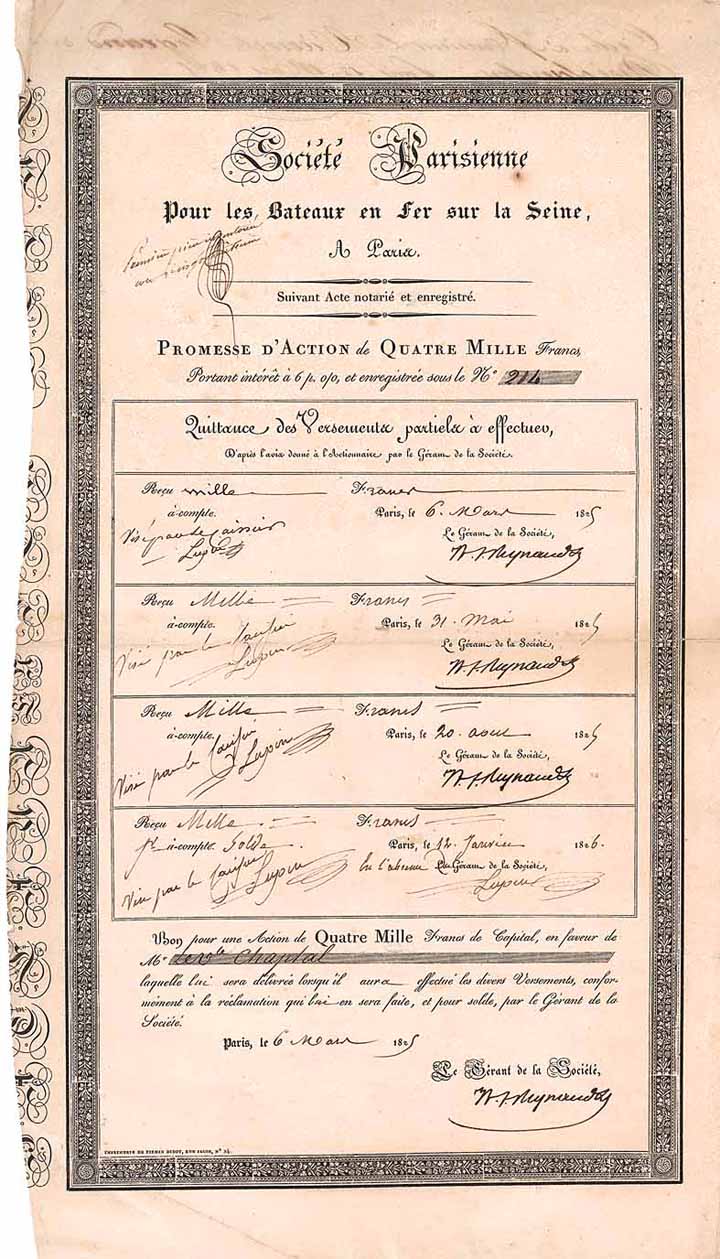 Société Parisienne
Pour les Bateaux en Fer sur la Seine,
A Paris.
Première
Suivant Acte notarié et enregistré.
PROMESSE D'ACTION de QUATRE MILLE Francs,
Portant intérêt à 6 p. o/o, et enregistrée sous le N° 214
Quittance des Versements partiels à effectuer,
D'après l'avis donné à l'Actionnaire par le Gérant de la Société.
Reçu mille Francs
à-compte. Paris, le 6. Mars 1825
Visé par le caissier Le Gérant de la Société,
Lupin
Reçu Mille Francs
à-compte. Paris, le 31. Mai 1825
Visé par le caissier Le Gérant de la Société,
Lupin
Reçu Mille Francs
à-compte. Paris, le 20. aout 1825
Visé par le caissier Le Gérant de la Société,
Lupin
Reçu Mille Francs
pr à-compte. Solde. Paris, le 12. Janvier 1826.
Visé par le caissier En l'absence du Gérant de la Société,
Lupin Lupin
Bon pour une Action de Quatre Mille Francs de Capital, en faveur de
Mr Le Vte Chaptal
laquelle lui sera délivrée lorsqu'il aura effectué les divers Versements, confor-
mément à la réclamation qui lui en sera faite, et pour solde, par le Gérant de la
Société.
Paris, le 6 Mars 1825
Le Gérant de la Société,
IMPRIMERIE DE FIRMIN DIDOT, RUE JACOB, N° 24.